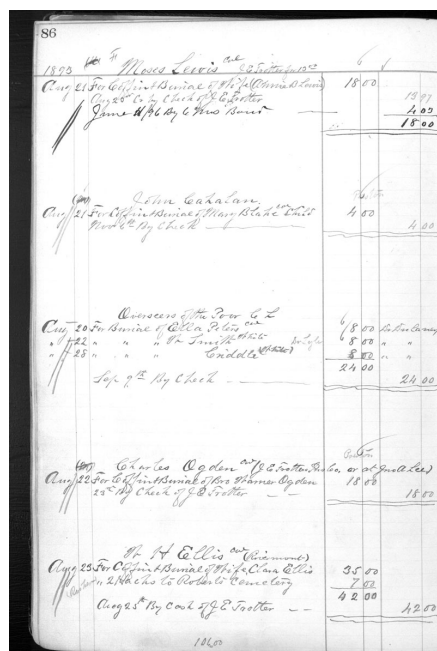 86
1893 Moses Lewis col J E Trotter
Aug 21 For Coffin & Burial of Wife (Annie B Lewis) 18 00
Aug 25 Co by Check of J. E. Trotter 13 97
June 11/96 By C 4 03
18 00
John Cahalan
Aug 21 For Coffin & Burial of Mary Blake col Child 4 00
Nov 6th By Check 4 00
Overseers of the Poor
Aug 20 For Burial of Ella Peters col 8 00
" 22 " " " Wm Smith 8 00 " "
" 28 " " " Criddle 8 00 " "
24 00
Sep 9th By Check 24 00
Charles Ogden col (J. E. Trotter, or at Jno A Lee)
Aug 22 For Coffin & Burial of Bro Ogden 18 00
25th By Check of J E Trotter 18 00
W H Ellis col (Rivermont)
Aug 23 For Coffin & Burial of Wife, Clara Ellis 35 00
" 2 Hacks to Roberts Cemetery 7 00
42 00
Aug 25th By Cash of J. E. Trotter 42 00